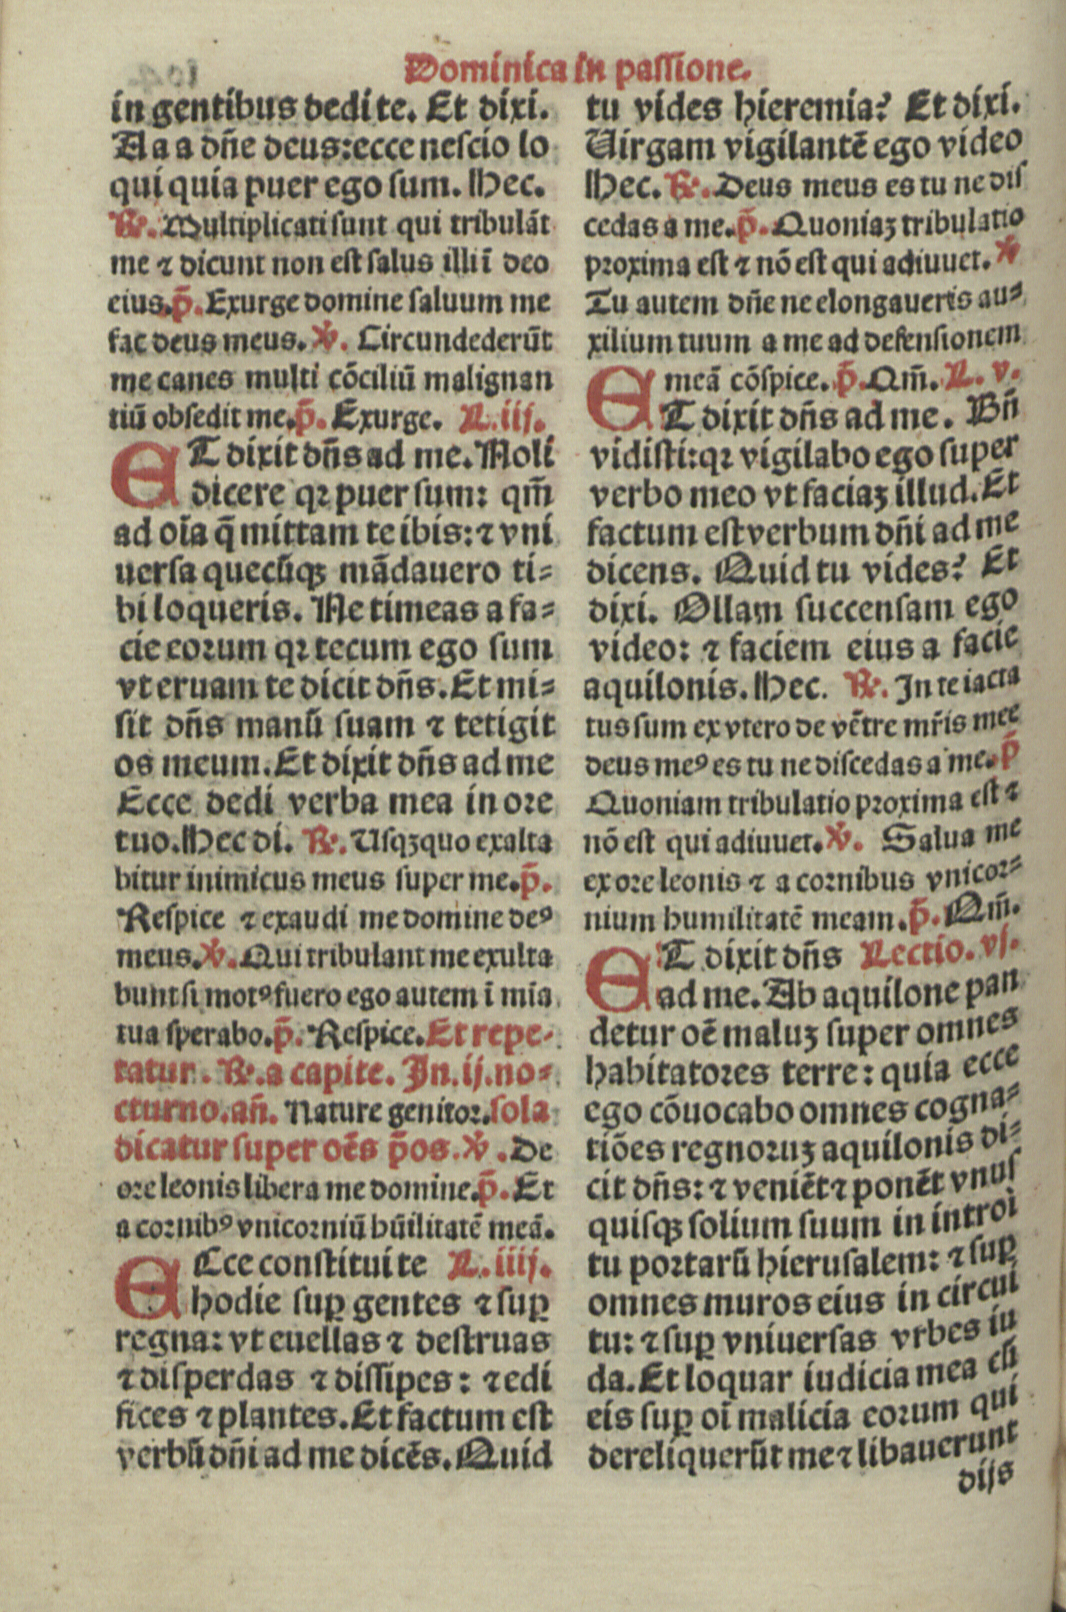 Dominica in passione.
in gentibus dedi te. Et dixi.
A a a dñe deus: ecce nescio lo
qui quia puer ego sum. Hec.
℟. Multiplicati sunt qui tribulãt
me ⁊ dicunt non est salus illi ĩ deo
eius. p̃. Exurge domine saluum me
fac deus meus. ℣. Circundederũt
me canes multi cõciliũ malignan
tiũ obsedit me. p̃. Exurge. L. iij.
ET dixit dñs ad me. Noli
dicere qꝛ puer sum: qm̃
ad oĩa q̃ mittam te ibis: ⁊ vni
uersa quecũqꝫ mãdauero ti⸗
bi loqueris. Ne timeas a fa⸗
cie eorum qꝛ tecum ego sum
vt eruam te dicit dñs. Et mi⸗
sit dñs manũ suam ⁊ tetigit
os meum. Et dixit dñs ad me
Ecce dedi verba mea in ore
tuo. Hec di. ℟. Usqꝫquo exalta
bitur inimicus meus super me. p̃.
Respice ⁊ exaudi me domine deꝰ
meus. ℣. Qui tribulant me exulta
bunt si motꝰ fuero ego autem ĩ mia
tua sperabo. p̃. Respice. Et repe⸗
tatur. ℟. a capite. In. ij. no⸗
cturno. añ. Nature genitor. sola
dicatur super oẽs p̃os. ℣. De
ore leonis libera me domine. p̃. Et
a cornibꝰ vnicorniũ hũilitatẽ meã.
ECce constitui te L. iiij.
hodie suꝑ gentes ⁊ suꝑ
regna: vt euellas ⁊ destruas
⁊ disperdas ⁊ dissipes: ⁊ edi
fices ⁊ plantes. Et factum est
verbũ dñi ad me dicẽs. Quid
tu vides hieremia? Et dixi.
Uirgam vigilantẽ ego video
Hec. ℟. Deus meus es tu ne dis
cedas a me. p̃. Quoniaꝫ tribulatio
proxima est ⁊ nõ est qui adiuuet. ℣
Tu autem dñe ne elongaueris au⸗
xilium tuum a me ad defensionem
meã cõspice. p̃. Qm̃. L. v.
ET dixit dñs ad me. Bñ
vidisti: qꝛ vigilabo ego super
verbo meo vt faciaꝫ illud. Et
factum est verbum dñi ad me
dicens. Quid tu vides? Et
dixi. Ollam succensam ego
video: ⁊ faciem eius a facie
aquilonis. Hec. ℟. In te iacta
tus sum ex vtero de vẽtre mr̃is mee
deus meꝰ es tu ne discedas a me. p̃
Quoniam tribulatio proxima est ⁊
nõ est qui adiuuet. ℣. Salua me
ex ore leonis ⁊ a cornibus vnicor⸗
nium humilitatẽ meam. p̃. Qm̃.
ET dixit dñs Lectio. vj.
ad me. Ab aquilone pan
detur oẽ maluꝫ super omnes
habitatores terre: quia ecce
ego cõuocabo omnes cogna⸗
tiões regnoruꝫ aquilonis di⸗
cit dñs: ⁊ veniẽt ⁊ ponẽt vnus
quisqꝫ solium suum in introi
tu portarũ hierusalem: ⁊ suꝑ
omnes muros eius in circui
tu: ⁊ suꝑ vniuersas vrbes iu
da. Et loquar iudicia mea cũ
eis suꝑ oĩ malicia eorum qui
dereliquerũt me ⁊ libauerunt
dijs